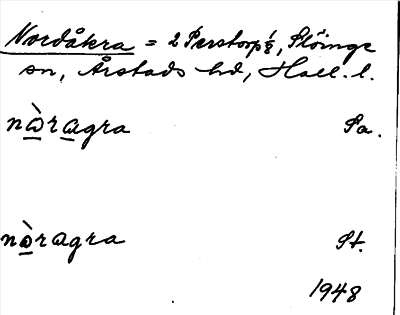 Nordåkra = 2 Perstorp 1/8, Slöinge
sn, Årstads hd, Hall. l.
nàragra Sa.
nàragra St.
1948